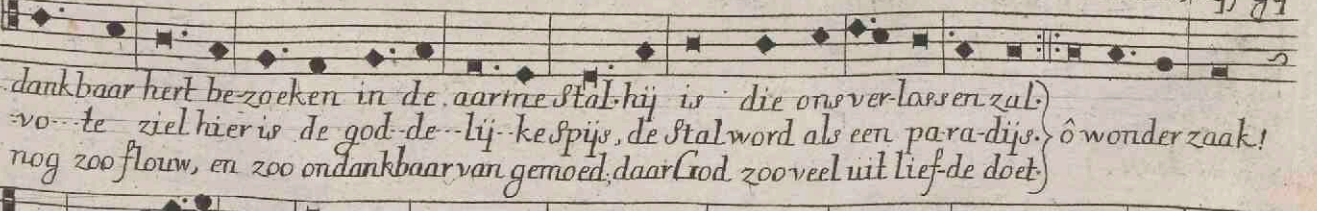 dankbaar hert be-zoeken in de aarme Stal. hij is die ons ver-lassen zal.)
-vo---te ziel hier is de god--de--lij--ke Spijs, de Stal word als een pa-ra-dijs.} ô wonder zaak!
nog zoo flouw, en zoo ondankbaar van gemoed, daar God zoo veel uit lief-de doet.)